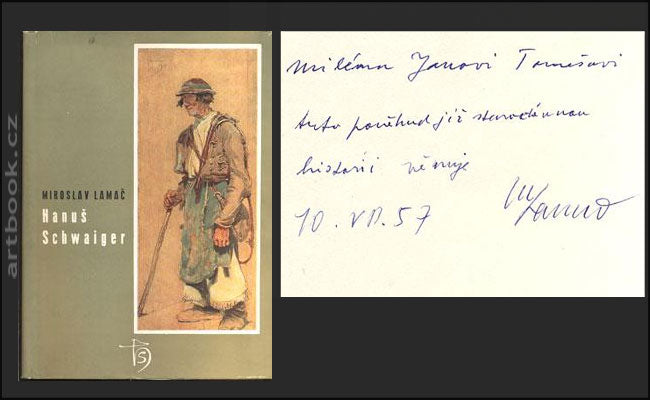 artbook.cz
MIROSLAV LAMAČ
Hanuš
Schwaiger
Milému Janovi Tomešovi
tuto poněkud již starodávnou
historii věnuje
10. VII. 57
MLamač